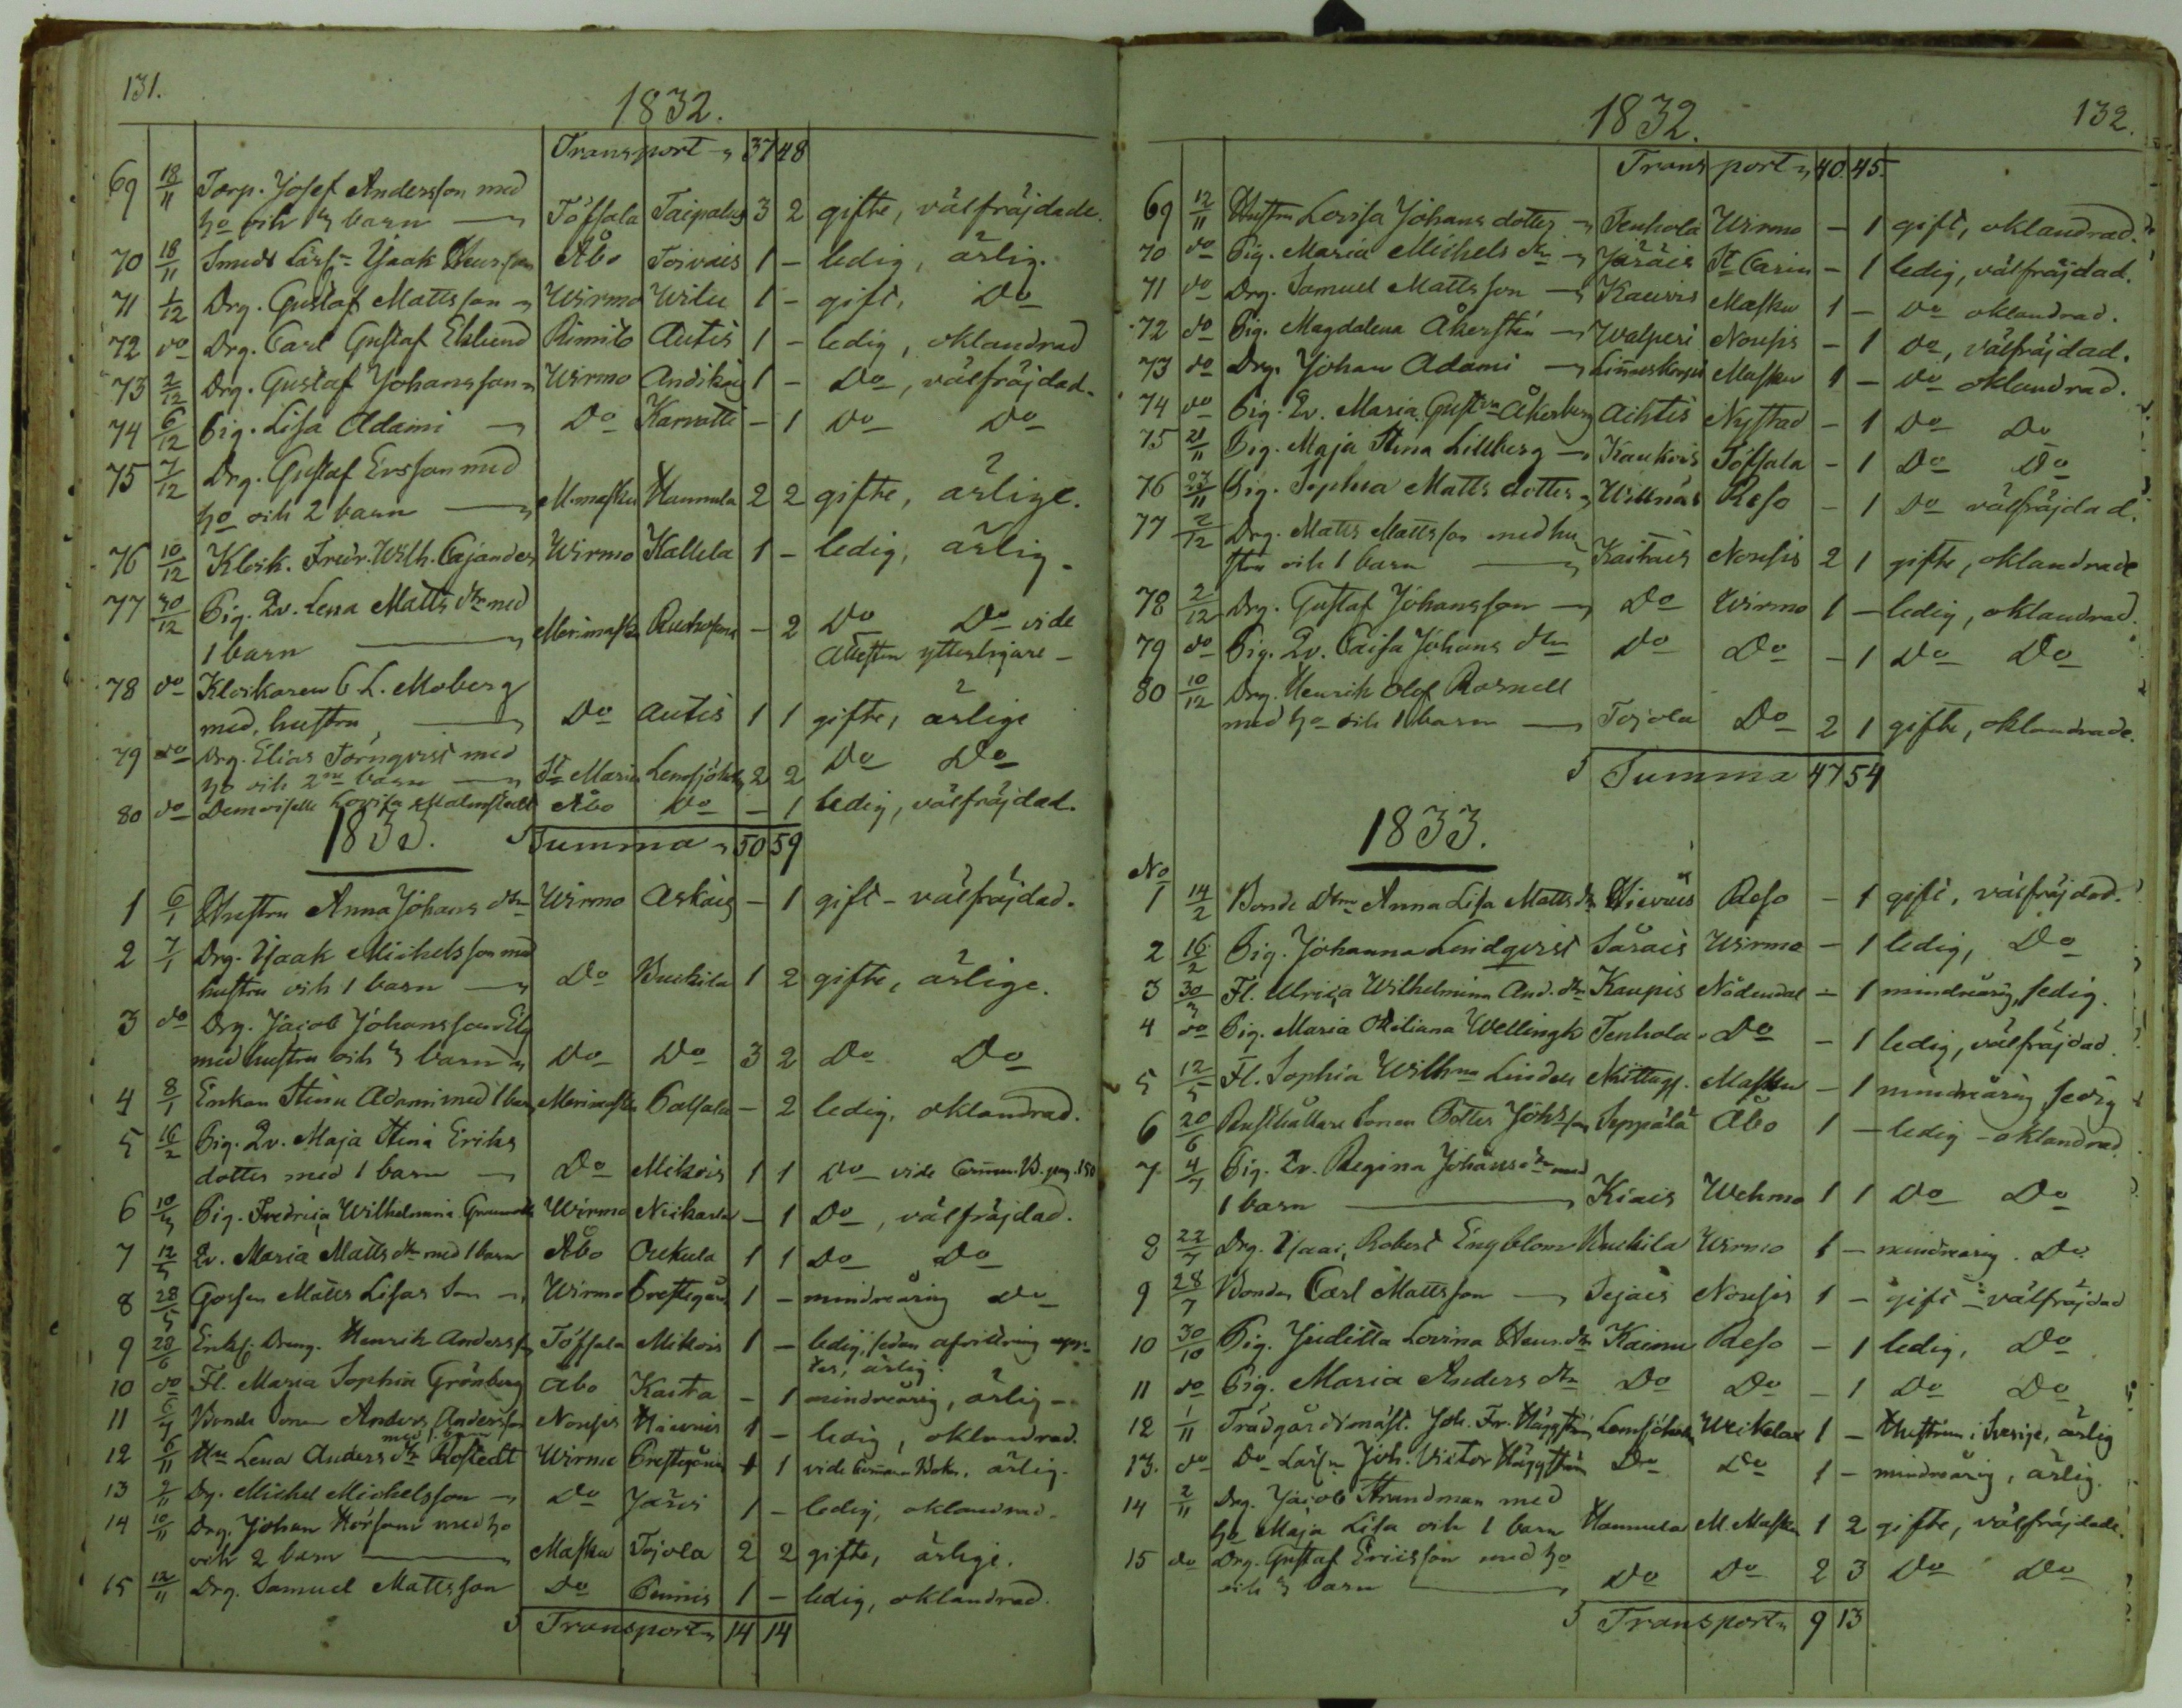 131.
1832.
Transport 37 48
69 18/11 Torp. Josef Andersson med
ho och 3 barn Töfsala Taipalus 3 2 gifte, välfräjdade.
70 18/11 Smeds Lärl. Isaak Åbo Torvais 1 - ledig, ärlig.
71 1/12 Drg. Gustaf Mattsson Wirmo Wilu 1 - gift, Do
72 do Drg. Carl Gustaf Eklund Rimito Autis 1 - ledig, oklandrad
73 2/12 Drg. Gustaf Johansson Wirmo 1 - Do, välfräjdad.
74 6/12 Pig. Lisa Adami Do Karvatti - 1 Do Do
75 7/12 Drg. Gustaf Ersson med
ho och 2 barn M:masku Hannula 2 2 gifte, ärlige.
76 10/12 Klock. Fredr. Wilh. Cajander Wirmo Kallela 1 - ledig, ärlig.
77 30/12 Pig. Qv. Lena Matts dtr med
1 barn Merimasku - 2 Do Do vide
attesten ytterligare
78 do Klockaren C L. Moberg
med, hustru Do Autis 1 1 gifte, ärlige
79 do Drg. Elias Törnqvist med
ho och 2ne barn St Marie 2 2 Do Do
80 do Demoiselle Lovisa Malmstedt Åbo Do - 1 ledig, välfräjdad.
1833. Summa 50 59
1 6/1 Hustru Anna Johans dtr Wirmo Askais - 1 gift - välfräjdad.
2 7/1 Drg. Isaak Michelsson med
hustru och 1 barn Do Kuckila 1 2 gifte, ärlige.
3 do Drg. Jacob Johansson Elg
med hustru och 3 barn Do Do 3 2 Do Do
4 8/1 Enkan Stina Adami med 1 barn Merimasku - 2 ledig, oklandrad.
5 16/2 Pig. Qv. Maja Stina Eriks
dotter med 1 barn Do Mikois 1 1 Do vide B. pag. 150
6 10/3 Pig. Fredrica Wilhelmina Wirmo - 1 Do, välfräjdad.
7 12/5 Qv. Maria Matts dtr med 1 barn Åbo 1 1 Do Do
8 28/5 Gossen Matts Lisas Son Wirmo Prestegård 1 - mindreårig Do
9 28/6 Dreng. Henrik Andersson Töfsala Mikois 1 - ledig,
ärlig.
10 do Fl. Maria Sophia Grönberg Åbo Kaita - 1 mindreårig, ärlig -
11 6/7 Bonde Sonen Anders Andersson Nousis 1 - ledig, oklandrad.
med 1 barn
12 6/11 Hu Lena Anders dtr Rostedt Wirmo Prestegård 1 1 vide ärlig.
13 9/11 Dg. Michel Michelsson Do Järvi 1 - ledig, oklandrad.
14 10/11 Drg. Johan med ho
och 2 barn Masku Tojola 2 2 gifte, ärlige.
15 12/11 Drg. Samuel Mattsson Do 1 - ledig, oklandrad.
Transport 14 14
132.
1832.
Transport 40. 45.
69 12/11 Hustru Lovisa Johans dotter Tenhola Wirmo - 1 gift, oklandrad.
70 do Pig. Maria Michels dtr St Carin - 1 ledig, välfräjdad.
71 do Drg. Samuel Mattsson Masku 1 - Do oklandrad.
72 do Pig. Magdalena Åkersten Walperi Nousis - 1 Do, välfräjdad.
73 do Drg. Johan Adami Masku 1 - Do oklandrad.
74 do Pig. Qv. Maria Gustva Åkerberg Nystad - 1 Do Do
75 21/11 Pig. Maja Stina Lillberg Kaukois Töfsala - 1 Do Do
76 23/11 Pig. Sophia Matts dotter Willnäs Reso - 1 Do välfräjdad.
77 2/12 Drg. Matts Mattsson med hu
stru och 1 barn Kaitais Nousis 2 1 gifte, oklandrade
78 2/12 Drg. Gustaf Johansson Do Wirmo 1 - ledig, oklandrad.
79 do Pig. Qv. Caisa Johans dtr Do Do - 1 Do Do
80 10/12 Drg. Henrik Olof Rosnell
med ho och 1 barn Tojola Do 2 1 gifte, oklandrade.
Summa 47 54
1833.
No
1 14/2 Bonde Anna Lisa Matts dtr Reso - 1 gift, välfräjdad.
2 16/2 Pig. Johanna Lindqvist Särais Wirmo - 1 ledig, Do
3 30/3 Fl. Ulrica Wilhelmina And. dtr Nådendal - 1 mindreårig, ledig.
4 do Pig. Maria Wellingk Tenhola Do - 1 ledig, välfräjdad.
5 12/5 Fl. Sophia Wilhma Lindell Masku - 1 mindreårig, ledig
6 20/6 Rusthållare Sonen Petter Johsson Seppälä Åbo 1 - ledig - oklandrad.
7 4/7 Pig. Qv. Regina Johans dtr med
1 barn Kiais Wehmo 1 1 Do Do
8 22/7 Drg. Isaac Robert Engblom Kuckila Wirmo 1 - mindreårig. Do
9 28/7 Bonden Carl Mattsson Nousis 1 - gift - välfräjdad
10 30/10 Pig. Juditta Lovina Hens. dtr Kainu Reso - 1 ledig, Do
11 do Pig. Maria Anders dtr Do Do - 1 Do Do
12 1/11 Trädgårdsmäst. Joh. Fr. Häggström 1 - Hustrun i Sverige, ärlig
13. do Do Lärl. Joh. Victor Häggström Do Do 1 - mindreårig, ärlig.
14 2/11 Drg. Jacob Strandman med
ho Maja Lisa och 1 barn Hannula M. Masku 1 2 gifte, välfräjdade.
15 do Drg. Gustaf Ericsson med ho
och 3 barn Do Do 2 3 Do Do
Transport 9 13